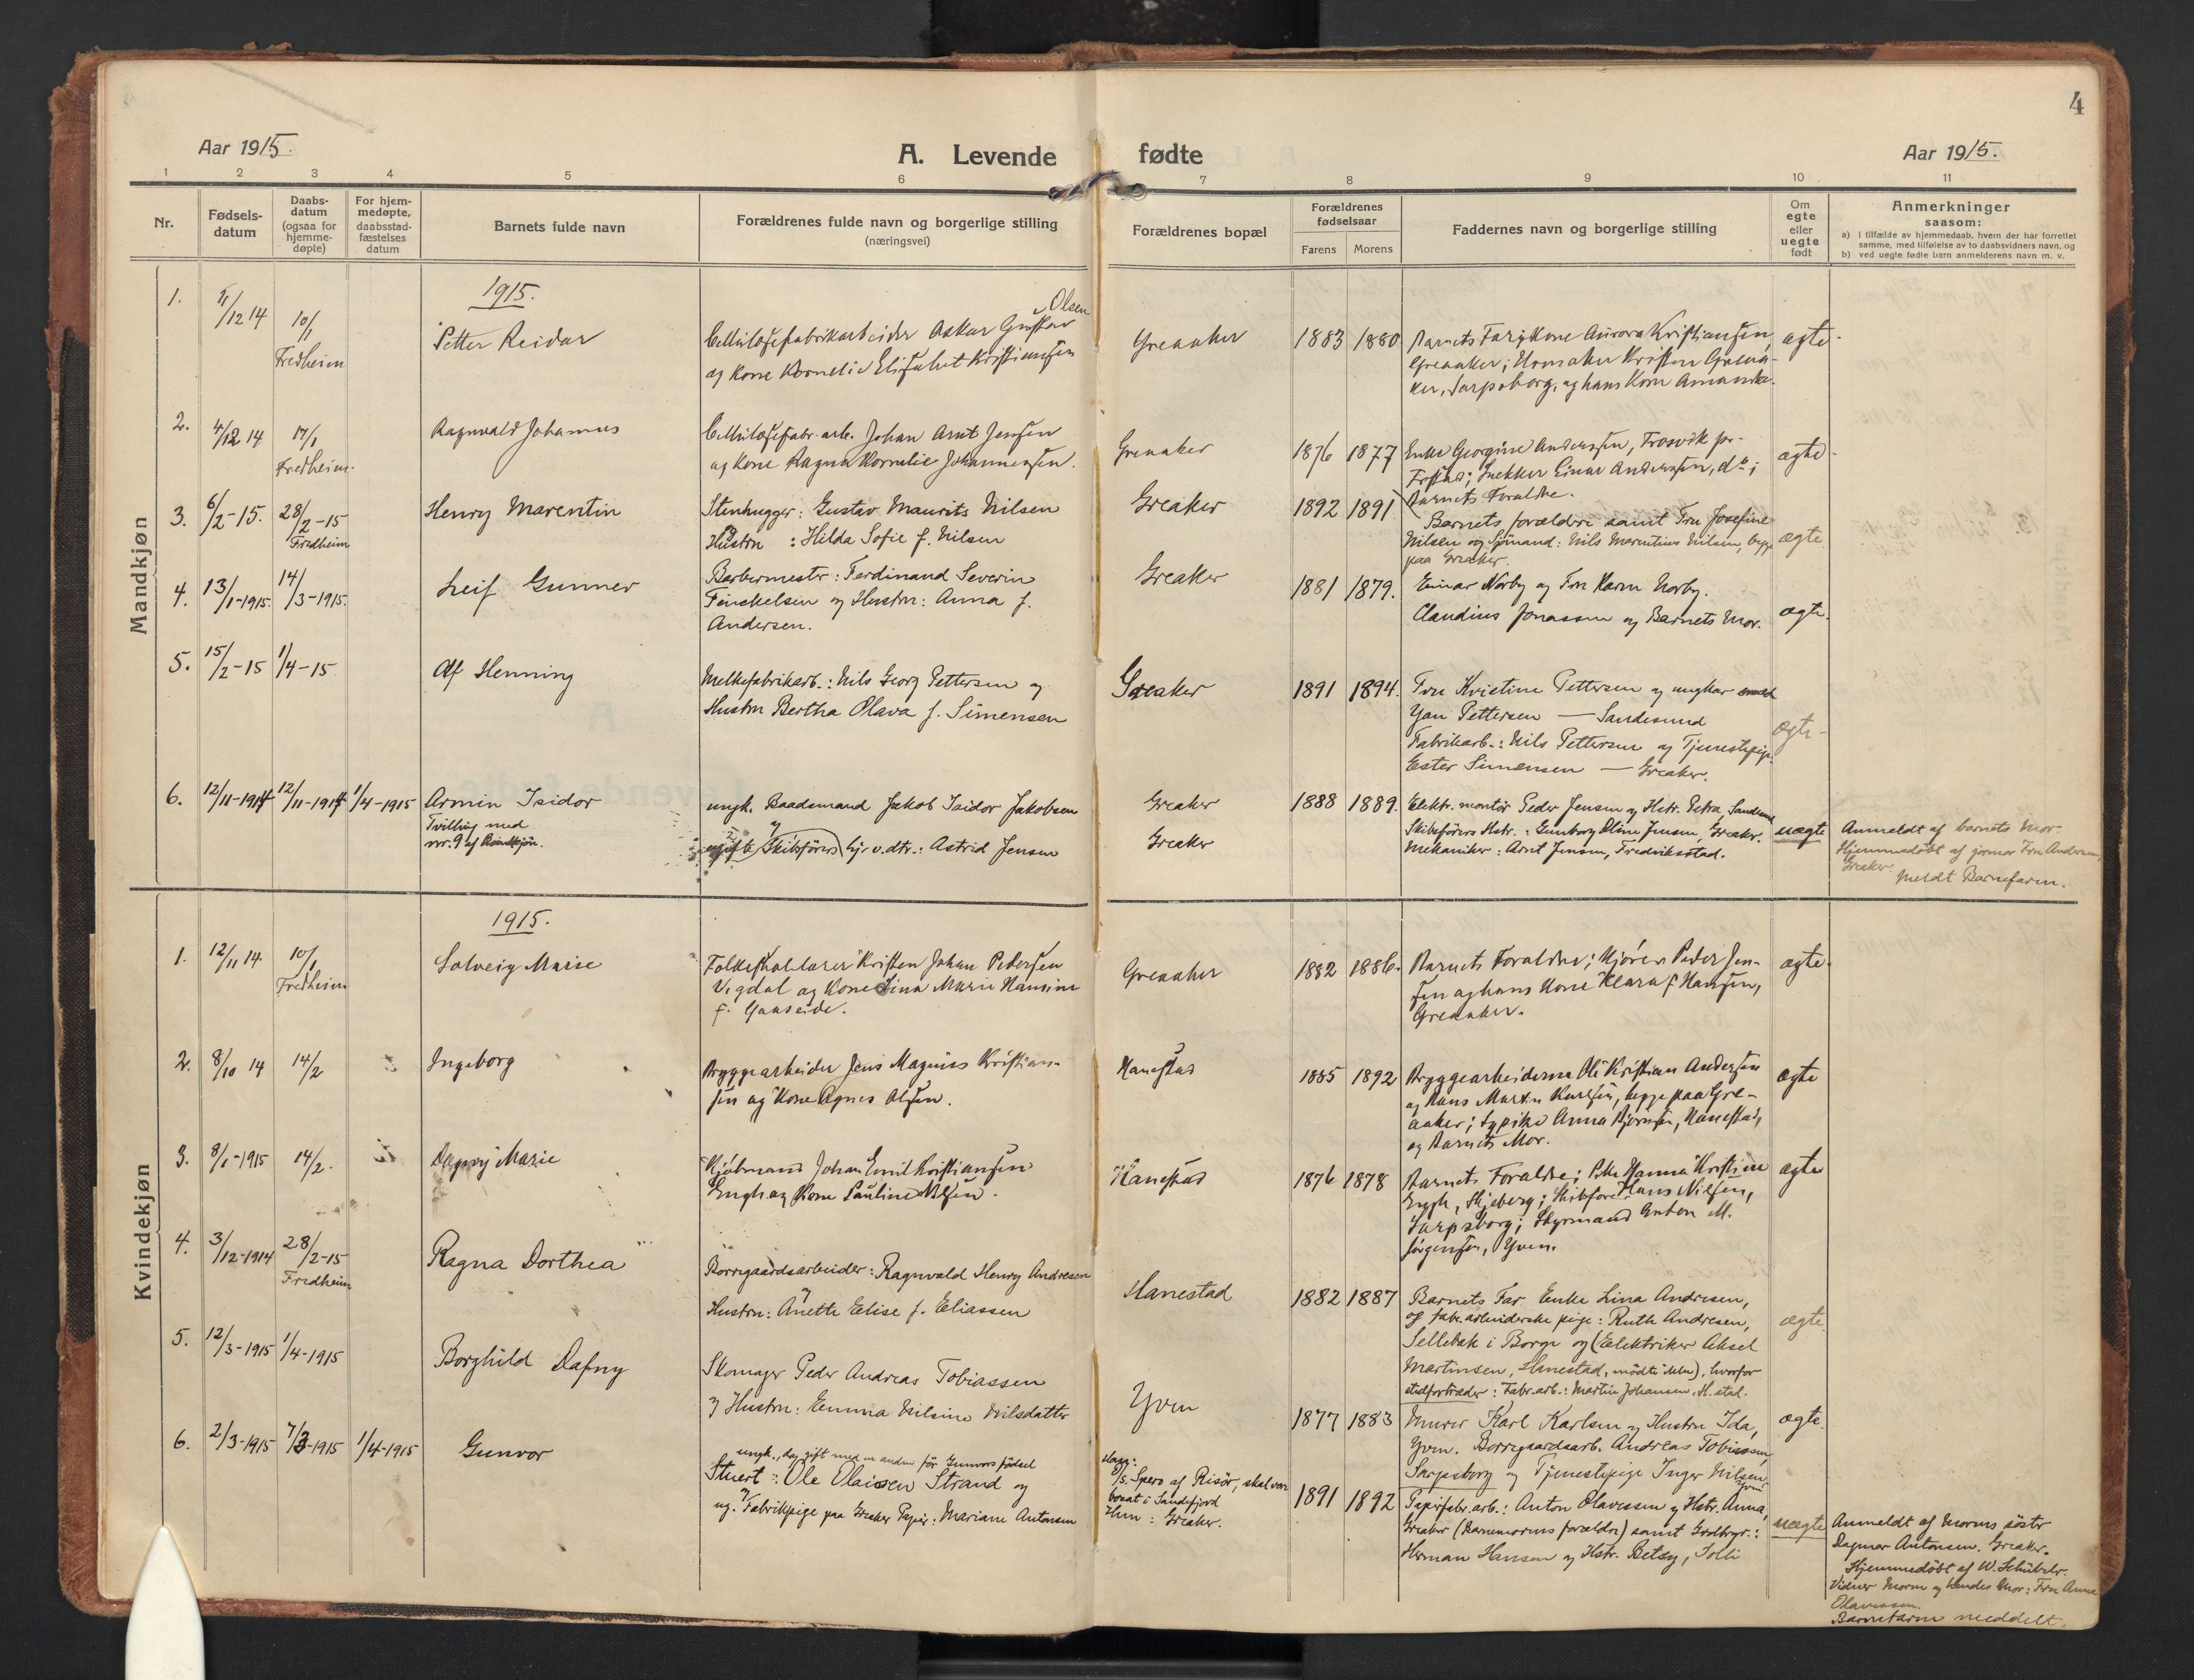 4
Aar 1915.
A. Levende fødte
Aar 1915.
1 2 3 4 5 6 7 8 9 10 11
Nr.
Fødsels-
datum
Daabs-
datum
(ogsaa for
hjemme-
døpte)
For hjem-
medøpte,
daabsstad-
fæstelses
datum
Barnets fulde navn
Forældrenes fulde navn og borgerlige stilling
(næringsvei)
Forældrenes bopæl
Forældrenes
fødselsaar
Farens Morens
Faddernes navn og borgerlige stilling
Om
egte
eller
uegte
født
Anmerkninger
saasom:
a) i tilfælde av hjemmedaab, hvem der har forrettet
samme, med tilføielse av to daabsvidners navn, og
b) ved uegte fødte barn anmelderens navn m. v.
Mandkjøn
1915.
1.
/12 14
10/1
Fredheim
Petter Reidar
Cellulosefabrikarbeider Oskar Gustav Olsen
og Kone Kornelie Elisabet Kristiansen
Greaaker
1883 1880
Barnets Far; Kone Aurora Kristiansen,
Greaaker; Urmaker Kristen Greaa-
ker, Sarpsborg, og hans Kone Amanda.
ægte
2.
4/12 14
17/1
Fredheim.
Ragnvald Johannes
Cellulosefabr. arb. Johan Arnt Jensen
og Kone Ragna Kornelie Johannesen.
Greaaker
1876 1877
Enke Georgine Andersen, Trosvik pr.
F.stad; Snekker Einar Andersen, do;
Barnets Forældre.
ægte
3.
6/2-15.
28/2-15
Fredheim
Henry Marentin
Stenhugger: Gustav Maurits Nilsen
og
Hustru: Hilda Sofie f. Nilsen
Greaker
1892 1891
Barnets forældre samt Fru Josefine
Nilsen og Sjømand: Nils Marentius Nilsen, begge
paa Greaker.
ægte
4.
13/1-1915.
14/3-1915.
Leif Gunner
Barbermester: Ferdinand Severin
Finckelsen og Hustru: Anna f.
Andersen.
Greaker
1881 1879.
Einar Norby og Fru Karen Norby.
Claudius Jonassen og Barnets Mor.
ægte.
5.
15/2-15
1/4-15
Alf Henning
Melkefabrikarb.: Nils Georg Pettersen og
Hustru Bertha Olava f. Simensen
Greaker
1891 1894.
Fru Kristine Pettersen og ungkar
Yan Pettersen — Sandesund
Fabrikarb.: Nils Pettersen og Tjenestepige.
Ester Simensen — Greaker.
ægte
6.
12/11-1914
12/11-1914
1/4-1915
Armin Isidor
Tvilling med
nr. 9 af Kvindkjøn.
ungk. Baadsmand Jakob Isidor Jakobsen
og
ugifte (Skibsførers) hj. v. dtr.: Astrid Jensen
Greaker
Greaker
1888 1889.
Elektr. montør Peder Jensen og Hstr. Petra, Sandesund
Skibsførers Hstr.: Gunborg Oline Jensen, Greaker.
Mekaniker: Arnt Jensen, Fredriksstad.
uægte
Anmeldt af barnets Mor.
Hjemmedøbt af jormor Fru Andersen,
Greaker.
Meldt Barnefaren.
Kvindekjøn
1915.
1.
12/11 14
10/1
Fredheim
Solveig Marie
Folkeskolelærer Kristen Johan Pedersen
Vigdal og Kone Lina Marie Hansine
f. Gaaseide.
Greaaker
1882 1886.
Barnets Forældre; Kjører Peder Jen-
sen og hans Kone Klara f. Hansen,
Greaaker.
ægte
2.
8/10 14
14/2
Ingeborg
Bryggearbeider Jens Magnus Kristian-
sen og Kone Agnes Olsen.
Hanestad
1885 1892
Bryggearbeiderne Ole Kristian Andersen
og Hans Martin Karlsen, begge paa Gre-
aaker; Sypike Anna Bjørnsen, Hanestad,
og Barnets Mor.
ægte
3.
8/1-1915
14/2.
Dagny Marie
Kjøbmand Johan Emil Kristiansen
Engh og Kone Pauline Nilsen.
Hanestad
1876 1878
Barnets Forældre; Pike Hanna Kristine
Engh, Skjeberg; Skibsfører Hans Nilsen,
Sarpsborg; Styrmand Anton M.
Jørgensen, Yven.
ægte
4.
3/12-1914
28/2-15
Fredheim
Ragna Dorthea
Borregaardsarbeider: Ragnvald Henry Andresen
og
Hustru: Anette Elise f. Eliassen
Hanestad
1882 1887
Barnets Far. Enke Lina Andresen,
og fabr. arbeiderske pige: Ruth Andresen,
Sellebak i Borge og (Elektriker Aksel
Martinsen, Hanestad, mødte ikke), hvorfor
stedfortræder: Fabr. arb.: Martin Johansen, H. stad.
ægte.
5.
12/3-1915
1/4-1915
Borghild Dafny
Skomager Peder Andreas Tobiassen
og Hustru: Emma Nilsine Nilsdatter
Yven
1877 1883
Murer Karl Karlsen og Hustru Ida,
Yven. Borregaardsarb. Andreas Tobiassen,
Sarpsborg og Tjenestepige Inger Nilsen,
Yven
ægte.
6.
2/3-1915
7/3-1915
1/4-1915
Gunvor
ungk., dog gift med en anden før Gunvors fødsel
Stuert: Ole Olaisen Strand og
ug. Fabrikpige paa Greaker Papir: Mariane Antonsen
Ham:
D/s. Spero af Risør, skal være
bosat i Sandefjord
Hun: Greaker.
1891 1892
Papirfabr. arb.: Anton Olavessen og Hstr. Anna,
Greaker (Barnemorens forældre) samt Grdbrgr.:
Herman Hansen og Hstr. Betsy, Solli
uægte
Anmeldt af Morens søster
Dagmar Antonsen. Greaker.
Hjemmedøbt af W. Schübeler.
Vidner Moren og hendes Mor: Fru Anna
Olavessen.
Barnefaren meddelt.